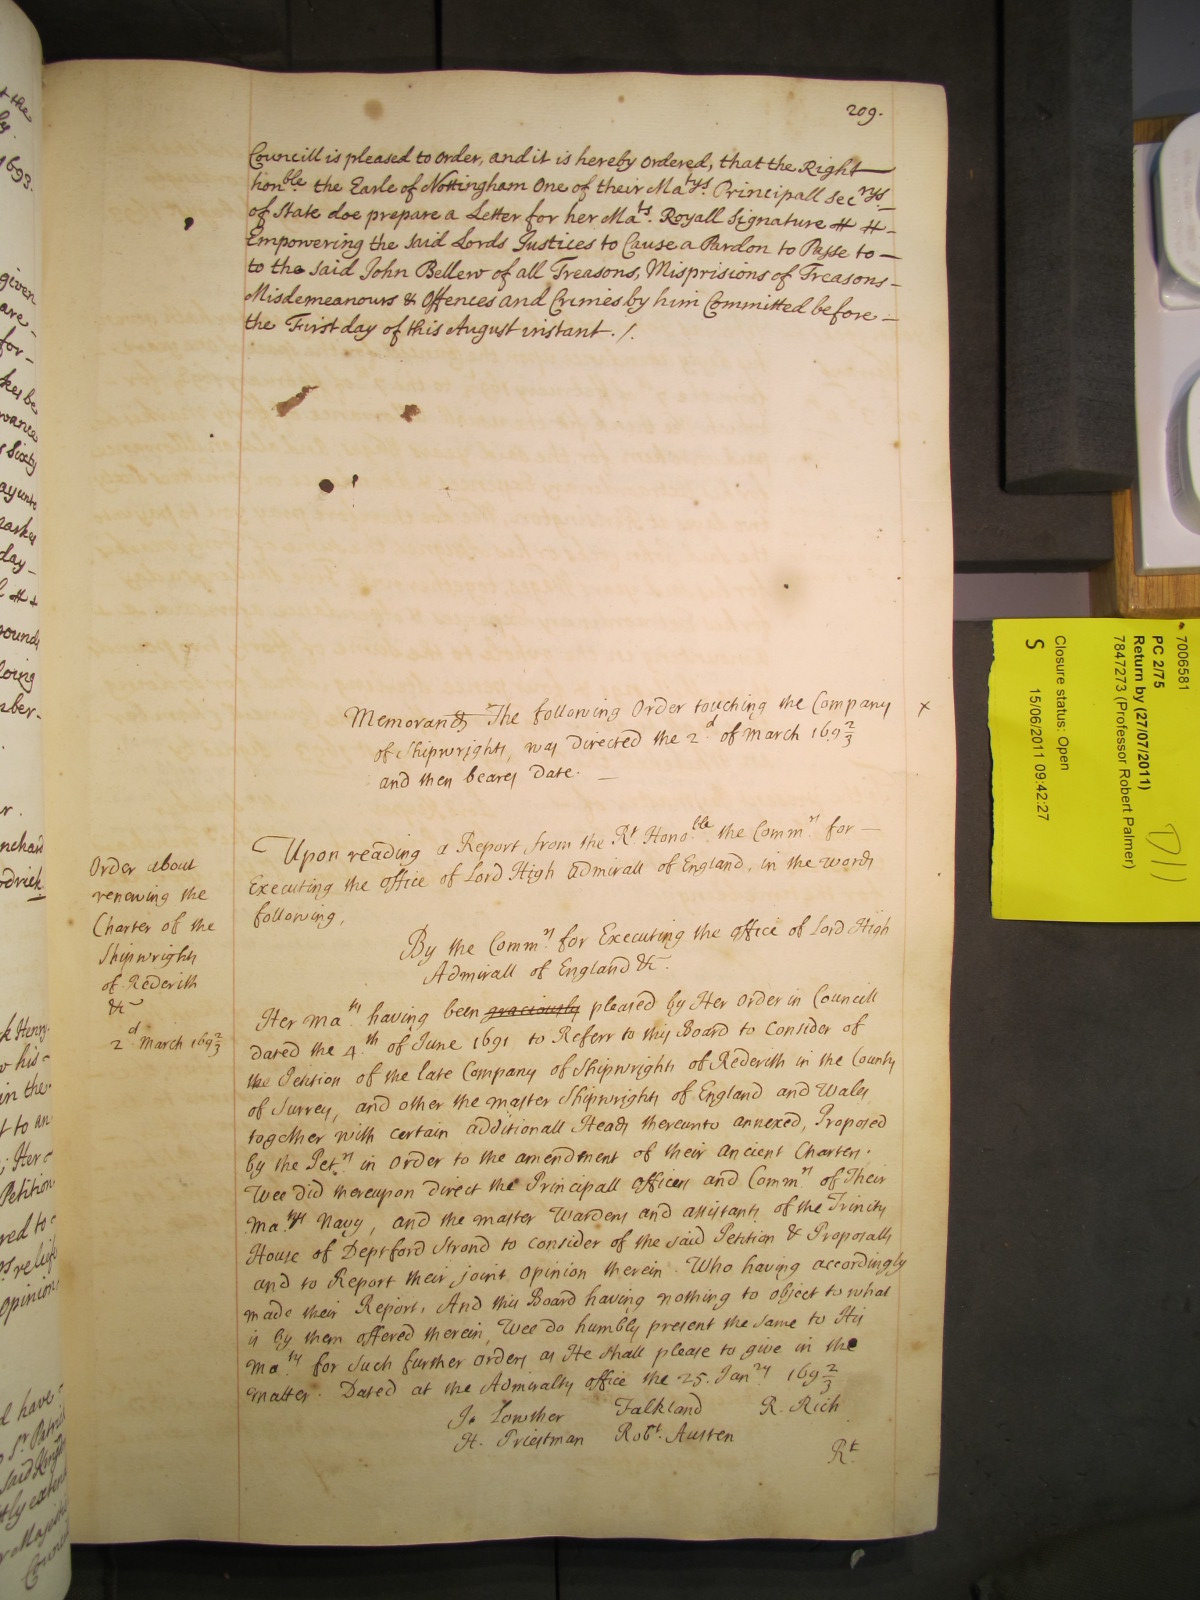 209.
Councill is pleased to order, and it is hereby ordered, that the Right
hon^ble the Earle of Nottingham One of their Ma^tys Principall Sec^rys
of State doe prepare a Letter for her Ma^ts. Royall Signature
Empowering the said Lords Justices to Cause a Pardon to Passe to
to the said John Bellew of all Treasons, Misprisions of Treasons
Misdemeanours & Offences and Crimes by him Committed before
the First day of this August instant ./.
Memorand The following Order touching the Company x
of Shipwrights, was Directed the 2^d of March 169 2/3
and then beares Date.
Upon reading a Report from the R^t Hono^ble the Comm^rs for
Executing the office of Lord High Admirall of England, in the words
following,
By the Comm^rs for Executing the office of Lord High
Admirall of England &c.
Order about
renewing the
Charter of the
Shipwrights
of Rederith
&c
2^d March 169 2/3
Her Ma^ty having been graciously pleased by Her Order in Councill
dated the 4^th of June 1691 to Referr to this Board to Consider of
the Petition of the late Company of Shipwrights of Rederith in the County
of Surrey, and other the master Shipwrights of England and Wales
together with certain additionall Heads thereunto annexed, Proposed
by the Pet^rs in order to the amendment of their ancient Charter.
Wee did thereupon direct the Principall officers and Comm^rs of Their
Ma^tys Navy, and the master Wardens and assistants of the Trinity
House of Deptford Strond to consider of the said Petition & Proposalls
and to Report their joint opinion therein. Who having accordingly
made their Report, And this Board having nothing to object to what
is by them offered therein, Wee do humbly present the same to His
Ma^ty for such further orders as He shall please to give in the
matter. Dated at the Admiralty office the 25. Jan^ry 169 2/3
J. Lowther Falkland R. Rich
H. Priestman Rob^t. Austen
R^t
7006581
PC 2/75
Return by (27/07/2011)
7847273 (Professor Robert Palmer)
Closure status: Open
S 15/06/2011 09:42:27
D11
t the
1693.
given
are
for
kes be
Sixty
day
pounds
k Henry
in the
t to an
; Her
Petition
red to
opinion
d have
S^r Patrick